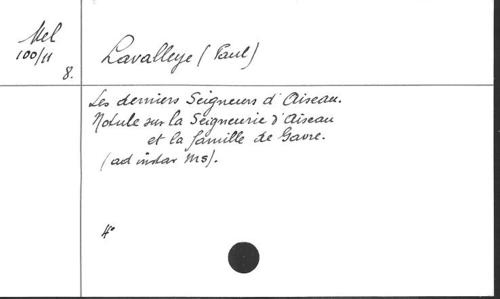 Mel
100/11
8.
Lavalleye (Paul)
Les derniers Seigneurs d'Aiseau.
Notule sur la Seigneurie d'Aiseau
et la famille de Gavre.
(ad instar Ms).
4°